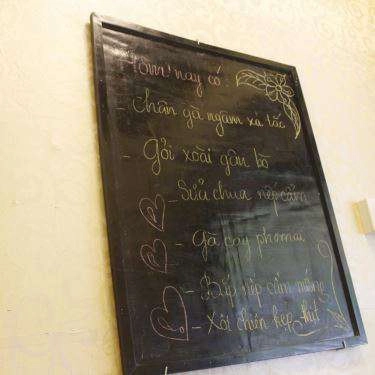 Hôm nay có:
- Chân gà ngâm xả tắc
- Gỏi xoài gân bò
- Sữa chua nếp cẩm
- Gà cay phomai
- Bắp xếp cắn
- Xôi chiên kẹp thịt